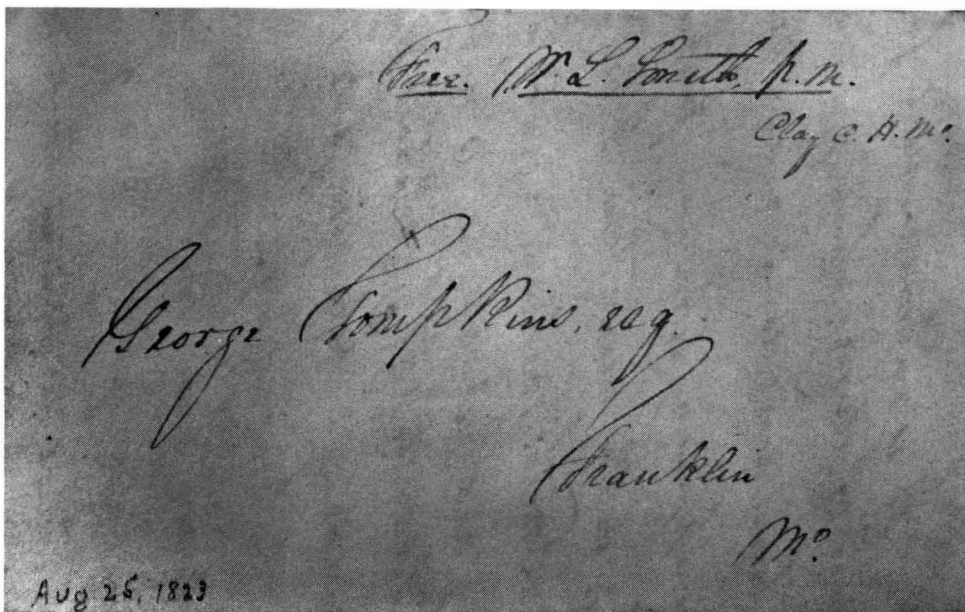 Free. W. L. Smith, p.m.
Clay C. H. Mo.
George Tompkins, esq.
Franklin
Mo.
Aug 25, 1823